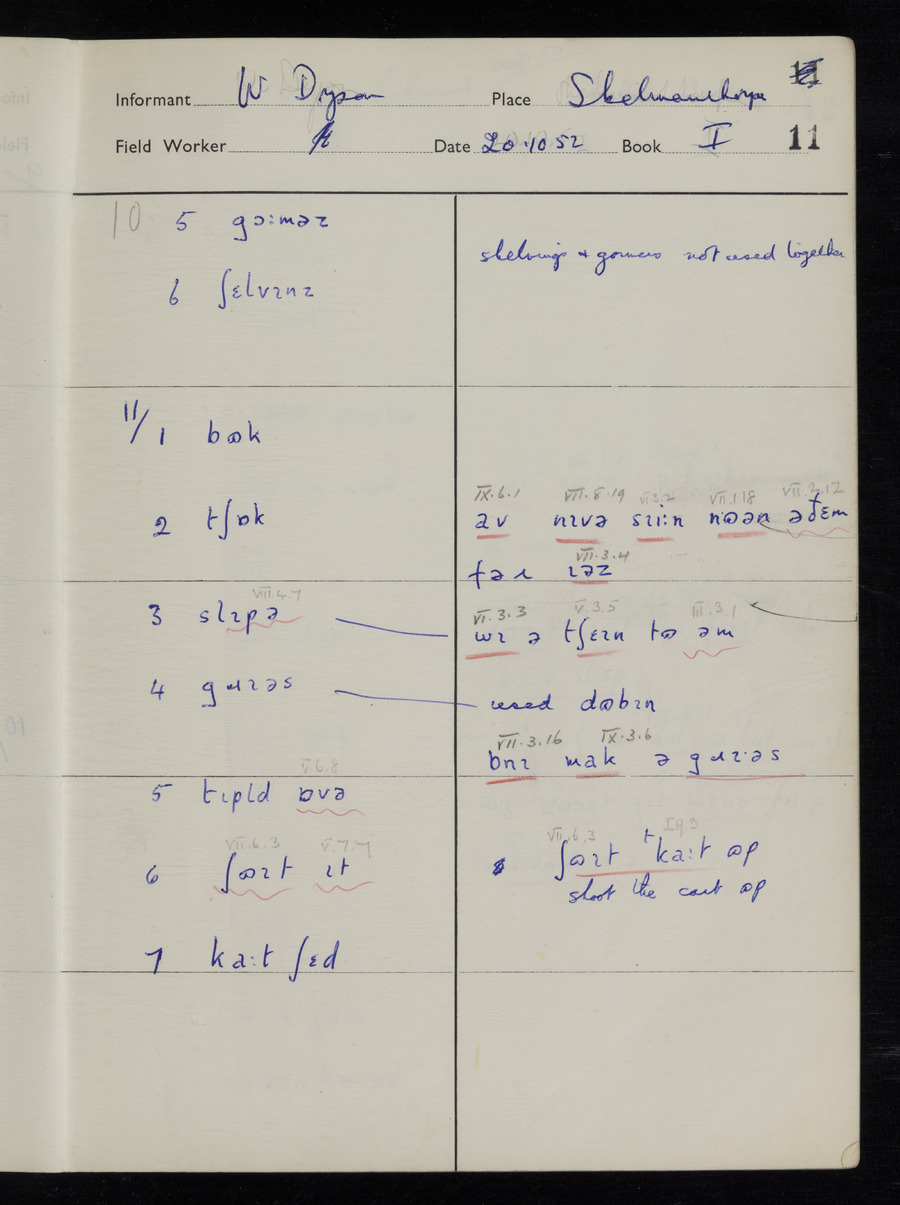 Informant W Dyson Place Skelmanthorpe
11
Field Worker Date 20.10.52 Book I
10 5 gɔ:məz
skelvings & gormers not used together
6 ʃɛlvɪnz
11/1 bɷk
IX.6.1 VII.8.19 VI.3.2 VII.1.18 VII.2.12
2 tʃɒk
av nɪvə sɪi:n nɷən
fəɹ VII.3.4
ɪəz
VIII.4.7
3 slɪpə
VI.3.3 V.3.5 III.3.1
wɪ ə tʃɛɪn tɷ əm
4 gɹɪəs
used dɷbɪn
VII.3.16 IX.3.6
bnɪ mak ə gɹɪ·əs
V.6.8
5 tɪpld ɒvə
VII.6.3 V.7.7
6 ʃɷɪt ɪt
VII.6.3 I.9.3
ʃɷɪt t ka:t ɷp
shoot the cart ɷp
7 ka:t ʃɛd